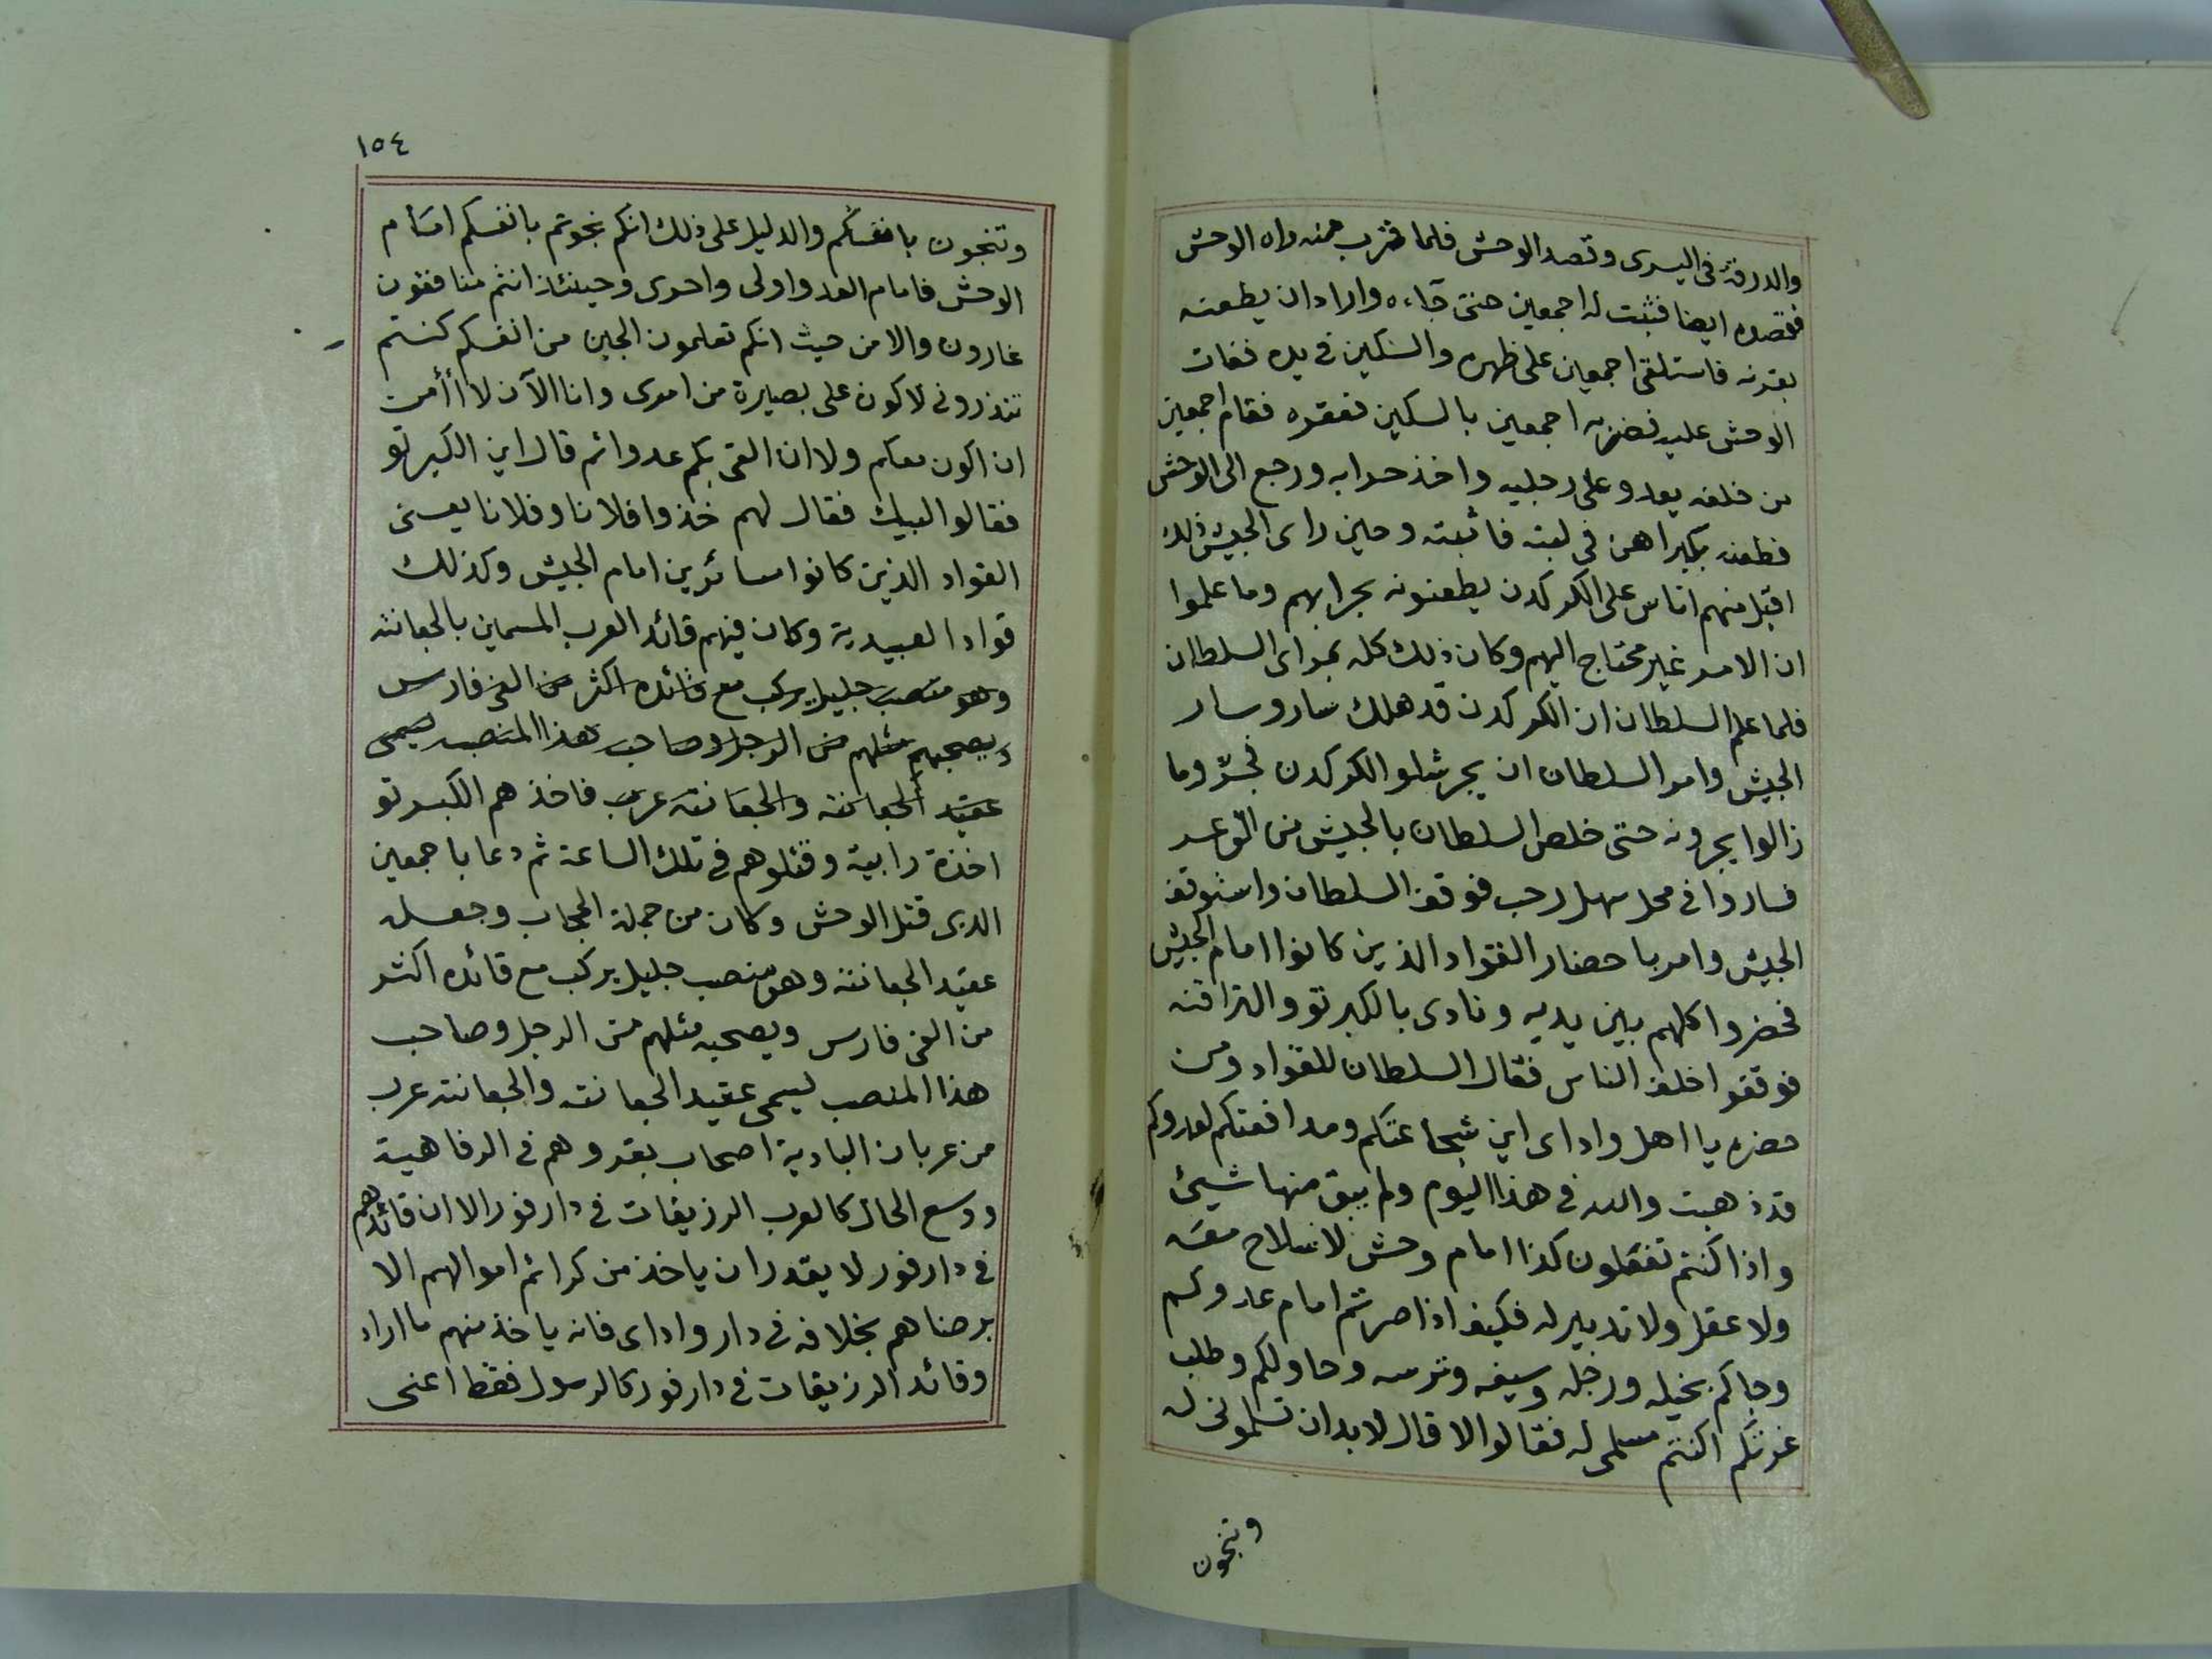 والدرقة فى اليسرى وقصد الوحش فلما قرب منه راه الوحش
فقصده ايضا فثبت له اجمعين حتى جاءه واراد ان يطعنه
بقرنه فاستلقى اجمعين على ظهره والسكين فى يده ففات
الوحش عليه فضربه اجمعين بالسكين فعقره فقام اجمعين
من خلفه يعدو على رجليه واخذ حرابه ورجع الى الوحش
فطعنه بكبراهن فى لبته فاثبته وحين راى الجيش ذلك
اقبل منهم اناس على الكركدن يطعنونه بحرابهم وما علموا
ان الامر غير محتاج اليهم وكان ذلك كله بمراى السلطان
فلما علم السلطان ان الكركدن قد هلك سار وسار
الجيش وامر السلطان ان يجر شلو الكركدن فجرّ وما
زالوا يجرونه حتى خلص السلطان بالجيش من الوعر
فساروا فى محل سهل رحب فوقف السلطان واستوقف
الجيش وامر باحضار القواد الذين كانوا امام الجيش
فحضروا كلهم بين يديه ونادى بالكبرتو والتراقنه
فوقفوا خلف الناس فقال السلطان للقواد ومن
حضره يا اهل واداى اين شجاعتكم ومدافعتكم لعدوكم
قد ذهبت والله فى هذا اليوم ولم يبق منها شيئ
واذا كنتم تفعلون كذا امام وحش لا سلاح معه
ولا عقل ولا تدبير له فكيف اذا صرتم امام عدوكم
وجاكم بخيله ورجله وسيفه وترسه وحاولكم وطلب
غرتكم اكنتم مسلمى له فقالوا لا قال لا بد ان تسلمونى له
وتنجون
١٥٤
وتنجون بانفسكم والدليل على ذلك انكم نجوتم بانفسكم امام
الوحش فامام العدو اولى واحرى وحينئذ انتم منافقون
غارون والا من حيث انكم تعلمون الجبن من انفسكم كنتم
تنذرونى لاكون على بصيرة من امرى وانا الآن لا أأمن
ان اكون معكم ولا ان القى بكم عدوا ثم قال اين الكبرتو
فقالوا لبيك فقال لهم خذوا فلانا وفلانا يعنى
القواد الذين كانوا سائرين امام الجيش وكذلك
قواد العبيدية وكان فيهم قائد العرب المسمين بالجعانته
وهو منصب جليل يركب مع قائده اكثر من الفى فارس
ويصحبهم مثلهم من الرجل وصاحب هذا المنصب يسمى
عقيد الجعانته والجعانته عرب فاخذهم الكبرتو
اخذة رابية وقتلوهم فى تلك الساعة ثم دعا باجمعين
الذى قتل الوحش وكان من جملة الحجاب وجعله
عقيد الجعانته وهو منصب جليل يركب مع قائده اكثر
من الفى فارس ويصحبه مثلهم من الرجل وصاحب
هذا المنصب يسمى عقيد الجعانته والجعانته عرب
من عربان البادية اصحاب بقر وهم فى الرفاهية
ووسع الحال كالعرب الرزيقات فى دارفور الا ان قائدهم
فى دارفور لا يقدر ان ياخذ من كرائم اموالهم الا
برضاهم بخلافه فى دار واداى فانه ياخذ منهم ما اراد
وقائد الرزيقات فى دارفور كالرسول فقط اعنى